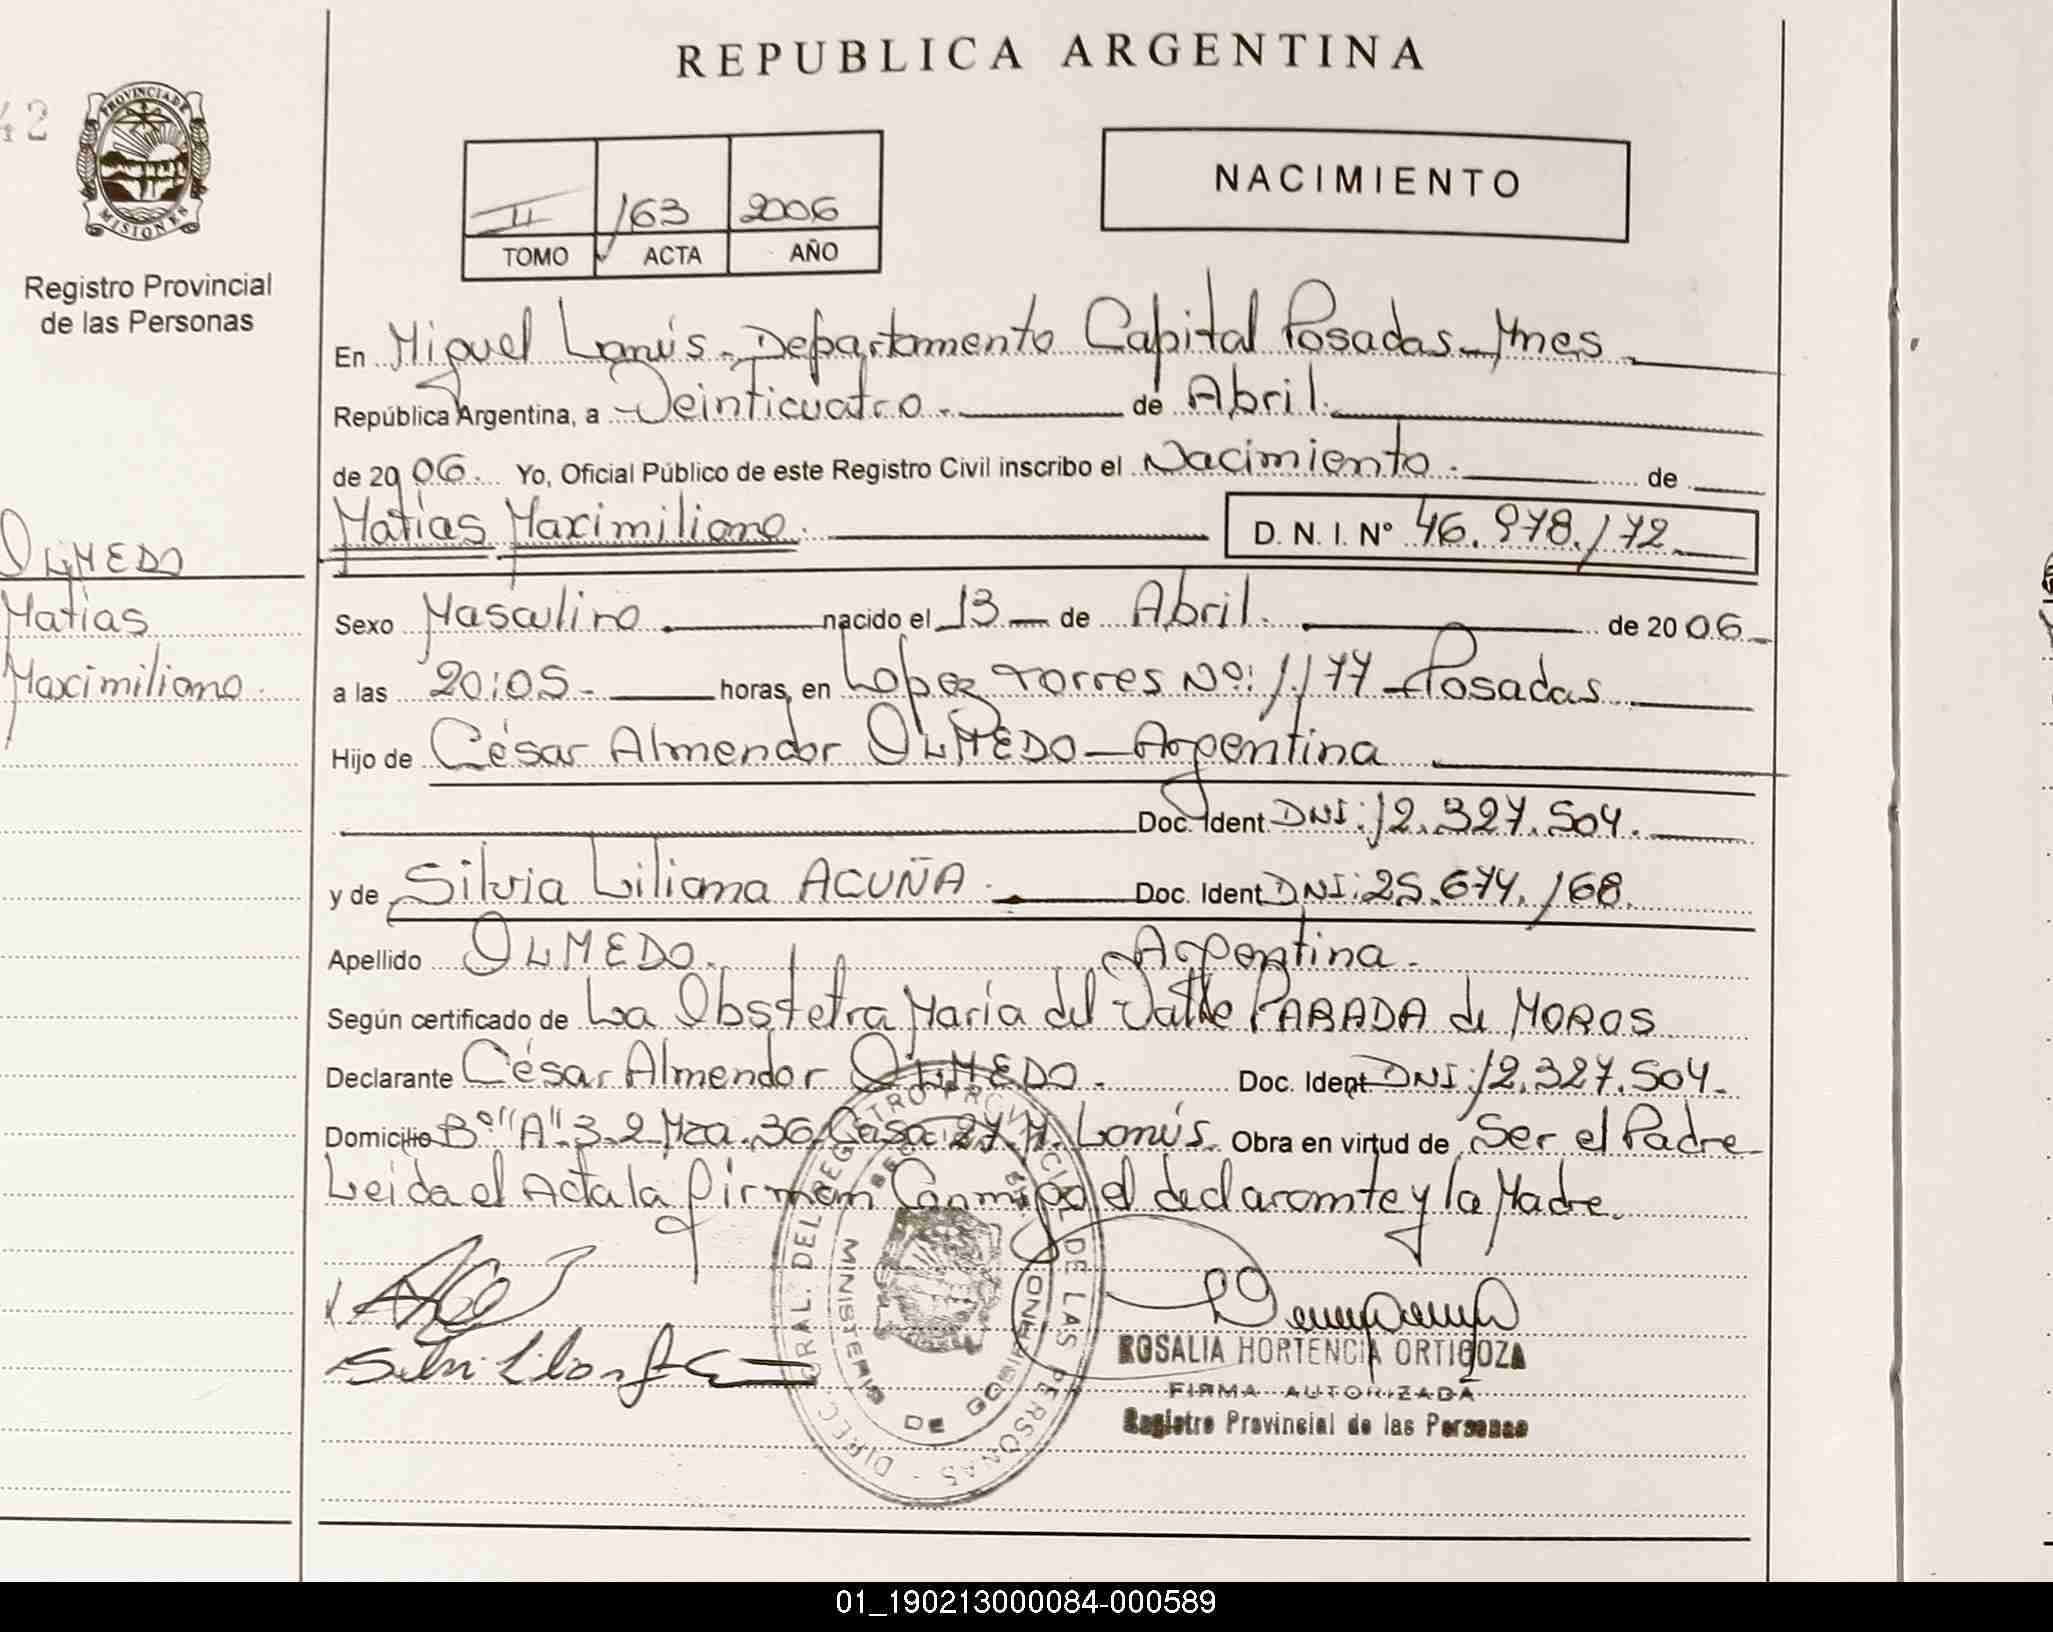 REPUBLICA ARGENTINA
42
PROVINCIA DE
MISIONES
Registro Provincial
de las Personas
II /63 2006
TOMO ACTA AÑO
NACIMIENTO
En Miguel Lanús - Departamento Capital Posadas - Mnes
República Argentina, a Veinticuatro. de Abril.
de 2006. Yo, Oficial Público de este Registro Civil inscribo el Nacimiento. de
Matías Maximiliano. D. N. I. Nº 46.978.172
OLMEDO
Matías
Maximiliano.
Sexo Masculino nacido el 13 de Abril. de 2006
a las 20:05 - horas, en Lopez Torres Nº: 1177 - Posadas
Hijo de César Almendor OLMEDO - Argentina
Doc. Ident. DNI: 12.327.504.
y de Silvia Liliana ACUÑA. Doc. Ident DNI: 25.674.168.
Apellido OLMEDO. Argentina.
Según certificado de La Obstetra María del Valle PARADA de MOROS
Declarante César Almendor OLMEDO. Doc. Ident DNI: 12.327.504.
Domicilio Bº "A" 3.2 Mza. 36 Casa: 27 M. Lanús. Obra en virtud de Ser el Padre
Leida el Acta la firman Conmigo el declarante y la Madre.
DIREC. GRAL. DEL REGISTRO PROVINCIAL DE LAS PERSONAS
MINISTERIO DE GOBIERNO
ROSALIA HORTENCIA ORTIGOZA
FIRMA AUTORIZADA
Registro Provincial de las Personas
01_190213000084-000589